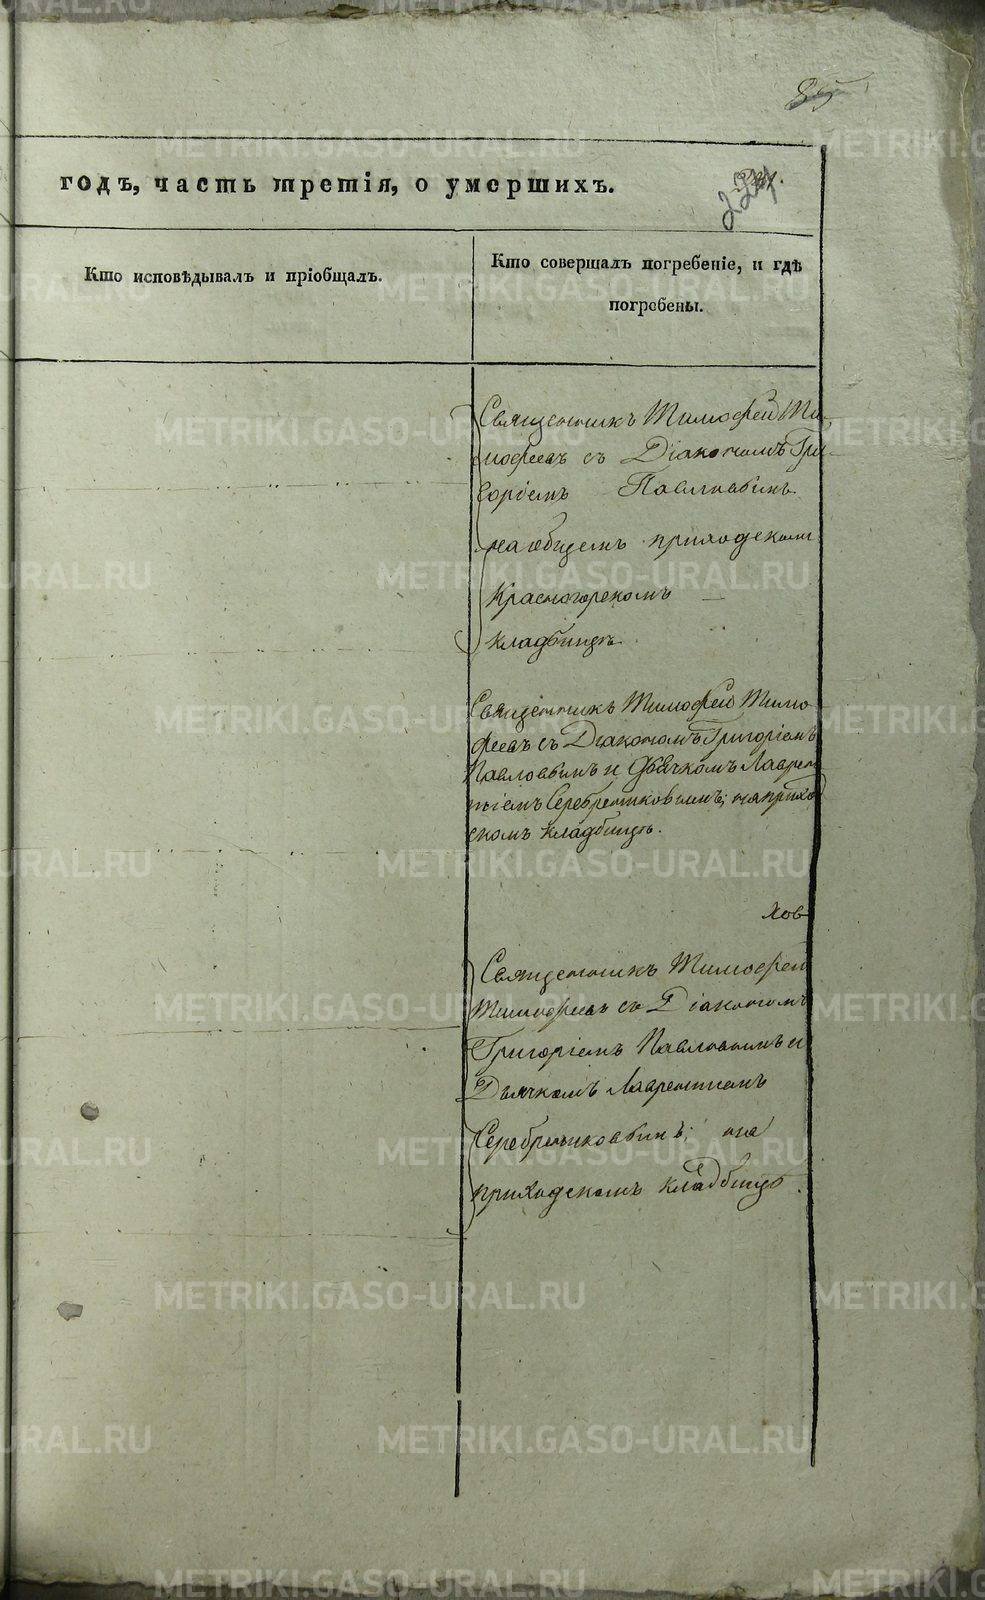 85
годъ, часть третія, о умершихъ.
Кто исповѣдывалъ и пріобщалъ.
Кто совершалъ погребеніе, и гдѣ
погребены.
Священникъ Тимофей Ти-
мофеевъ съ Діакономъ Гри-
горіемъ Павловымъ
на общемъ приходскомъ
Красногорскомъ
кладбищѣ.
Священникъ Тимофей Тимо
феевъ съ Діакономъ Григоріемъ
Павловымъ и Дьячкомъ Лаврен
тіемъ Серебренниковымъ; на приход
скомъ кладбищѣ.
хов
Священникъ Тимофей
Тимофеевъ съ Діакономъ
Григоріемъ Павловымъ и
Дьячкомъ Лаврентіемъ
Серебрениковымъ; на
приходскомъ кладбищѣ.
METRIKI.GASO-URAL.RU